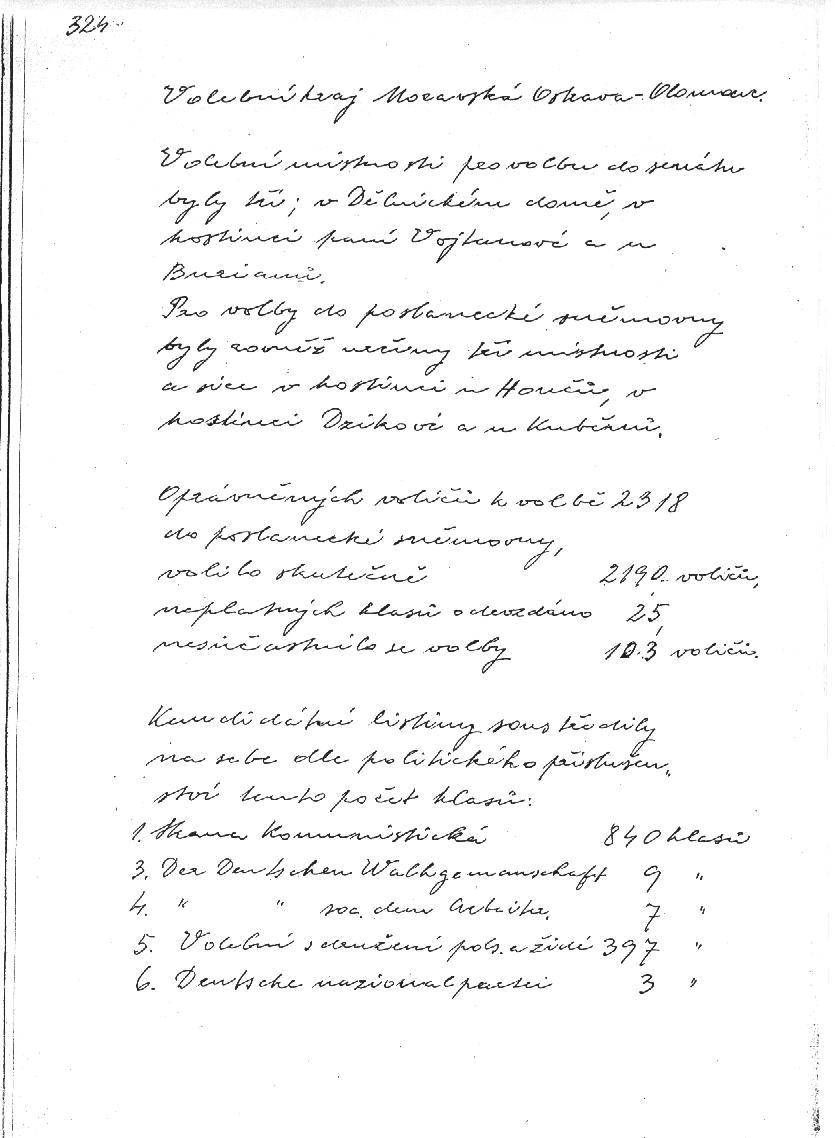 324
Volební kraj Moravská Ostrava-Olomouc.
Volební místnosti pro volbu do senátu
byly tři; v Dělnickém domě, v
hostinci paní Vojtunové a u
Burianů.
Pro volby do poslanecké sněmovny
byly rovněž určeny tři místnosti
a sice v hostinci u Houčů, v
hostinci Dzikové a u Kuběnů.
Oprávněných voličů k volbě 2318
do poslanecké sněmovny,
volilo skutečně 2190 voličů,
neplatných hlasů odevzdáno 25,
nesúčastnilo se volby 103 voličů.
Kandidátní listiny soustředily
na sebe dle politického příslušen„
ství tento počet hlasů:
1. Strana Komunistická 840 hlasů
3. Der Deutschen Walhgemanschaft 9 "
4. " " soc. dem Arbeite. 7 "
5. Volební sdružení pols. a židé 397 "
6. Deutsche nazionalpartei 3 "